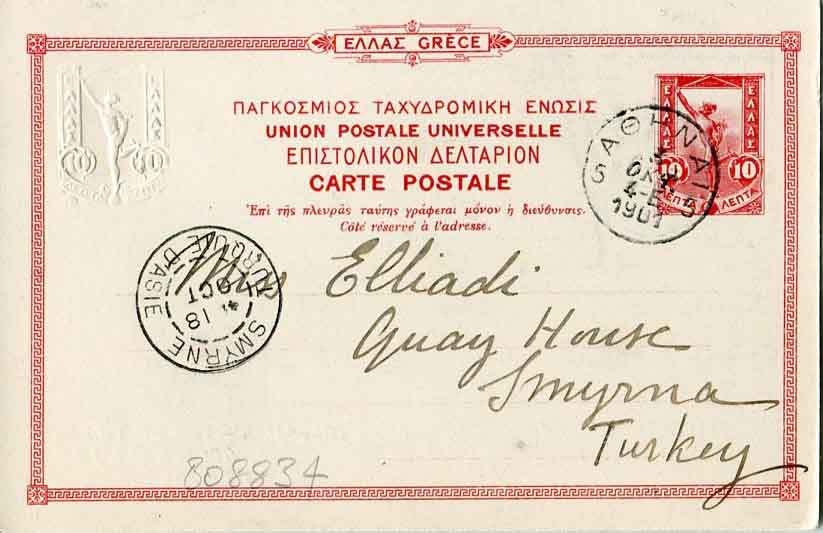 ΕΛΛΑΣ GRÈCE
ΠΑΓΚΟΣΜΙΟΣ ΤΑΧΥΔΡΟΜΙΚΗ ΕΝΩΣΙΣ
UNION POSTALE UNIVERSELLE
ΕΠΙΣΤΟΛΙΚΟΝ ΔΕΛΤΑΡΙΟΝ
CARTE POSTALE
Ἐπὶ τῆς πλευρᾶς ταύτης γράφεται μόνον ἡ διεύθυνσις.
Côté réservé à l'adresse.
ΕΛΛΑΣ ΕΛΛΑΣ
10 10
ΛΕΠΤΑ ΛΕΠΤΑ
ΕΛΛΑΣ ΕΛΛΑΣ
10 10
ΑΘΗΝΑΙ 5
ΟΚΤ
4-Ε
1901
Miss Elliadi
Quay House
Smyrna
Turkey
SMYRNE
TURQUIE D'ASIE
18
OCT
808834